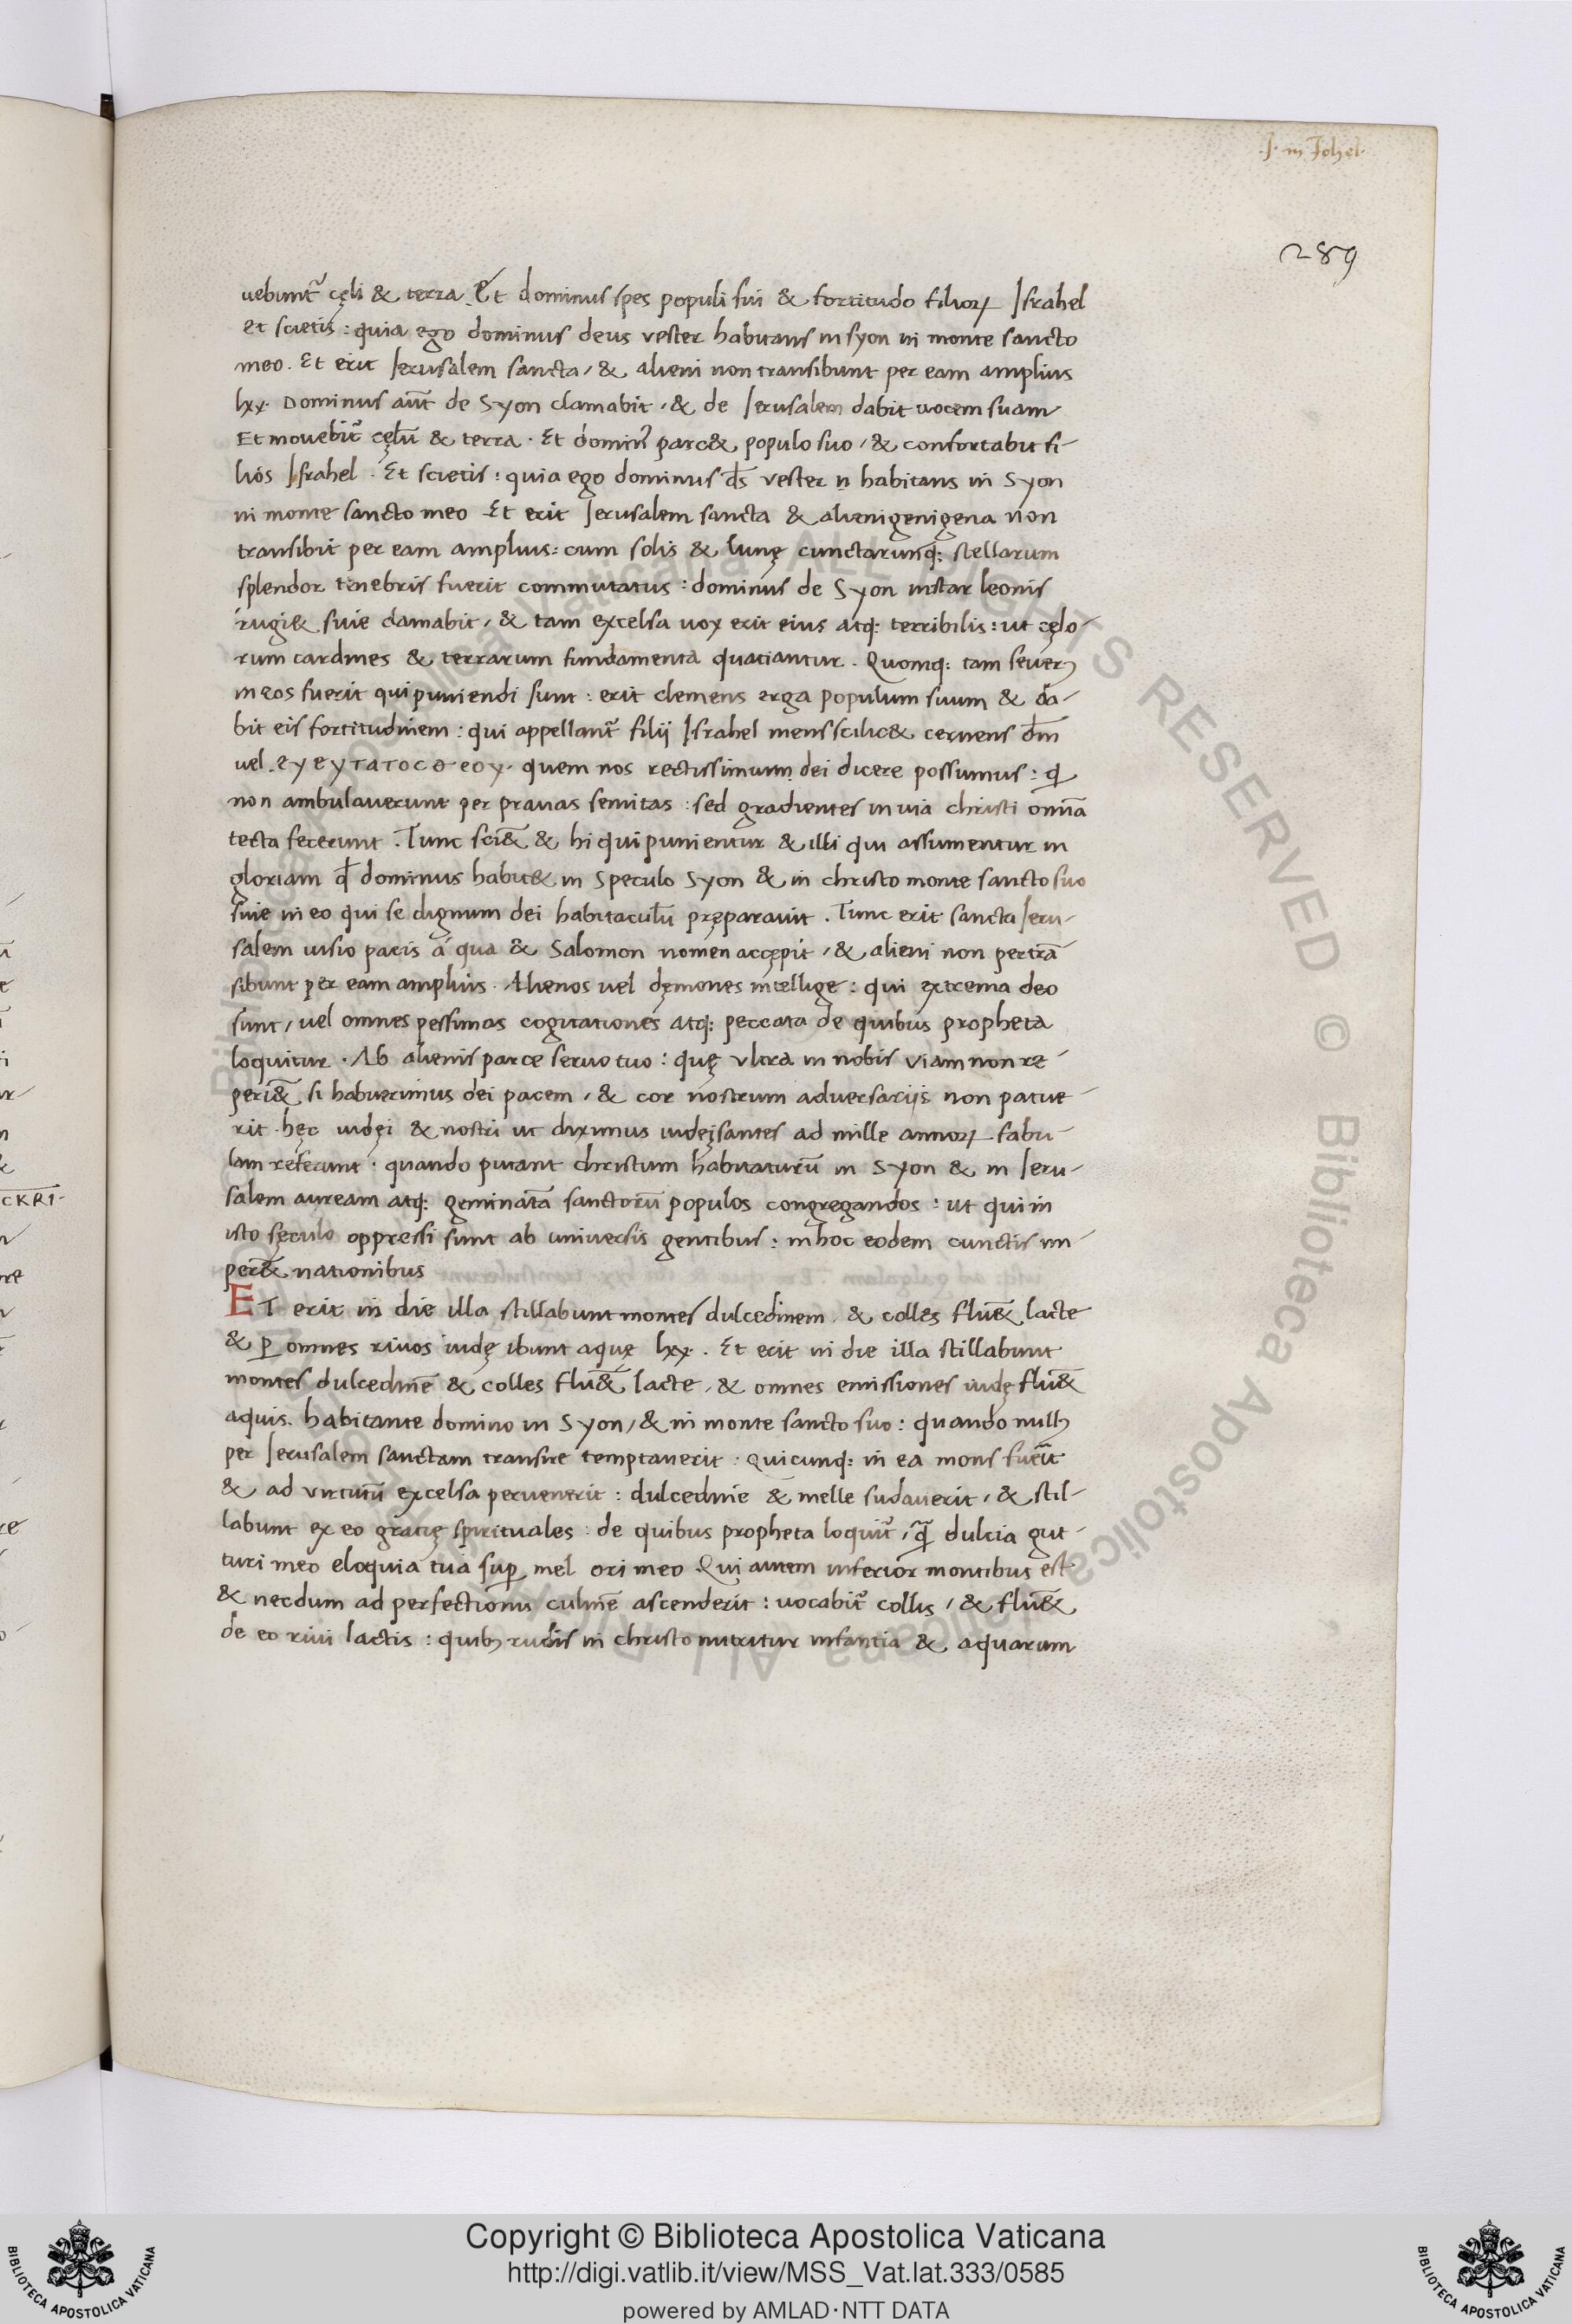 .J. in Johel.
289
uebunt᷑ cęli & terra. Et dominus spes populi sui & fortitudo filioꝝ Israhel
et scietis : quia ego dominus deus vester habitans in syon in monte sancto
meo. Et erit Jerusalem sancta / & alieni non transibunt per eam amplius
lxx. Dominus aūt de Syon clamabit / & de Jerusalem dabit uocem suam
Et movebit᷑ cęlū & terra . Et domin᷒ parc& populo suo / & confortabit fi-
lios Israhel . Et scietis : quia ego dominus ds̄ vester n habitans in Syon
in monte sancto meo Et erit Jerusalem sancta & alienigenigena non
transibit per eam amplius : cum solis & lunę cunctarunq: stellarum
splendor tenebris fuerit commutatus : dominus de Syon instar leonis
rugi& siue clamabit / & tam excelsa uox erit eius atq: terribilis : ut cęlo-
rum cardines & terrarum fundamenta quatiantur . Quomq: tam seuerꝰ
in eos fuerit qui puniendi sunt : erit clemens erga populum suum & da-
bit eis fortitudinem : qui appellant᷑ filij Israhel mens scilic& cernens dm̄
uel . εyεyτατοcθεοy . quem nos rectissimum dei dicere possumus : q̄
non ambulaverunt per pravas semitas : sed gradientes in via christi omīa
tecta fecerunt . Tunc sci&̄ & hi qui punientur & illi qui assumentur in
gloriam qd̄ dominus habit& in Speculo Syon & in christo monte sancto suo
siue in eo qui se dignum dei habitaculū pręparavit . Tunc erit sancta Jeru-
salem uisio pacis a qua & Salomon nomen accępit / & alieni non pertrā
sibunt per eam amplius . Alienos uel dęmones intellige : qui extrema deo
sunt / uel omnes pessimas cogitationes atq: peccata de quibus propheta
loquitur . Ab alienis parce servo tuo : quę vltra in nobis viam non re-
peri&̄ si habuerimus dei pacem / & cor nostrum adversariis non patue-
rit . hęc iudęi & nostri ut diximus iudęizantes ad mille annoꝝ fabu-
lam referunt . quando putant christum habitaturū in Syon & in Jeru-
salem auream atq: geminatā sanctorū populos congregandos : ut qui in
isto sęculo oppressi sunt ab universis gentibus : in hoc eodem cunctis im-
per&̄ nationibus
ET erit in die illa stillabunt montes dulcedinem . & colles flu&̄ lacte
& ꝑ omnes riuos iudę ibunt aquę lxx . Et erit in die illa stillabunt
montes dulcedinē & colles flu&̄ lacte / & omnes emissiones iudę flu&̄
aquis. habitante domino in Syon / & in monte sancto suo : quando nullꝰ
per Jerusalem sanctam transire temptaverit . Quicunq: in ea mons fuīt
& ad virtutū excelsa pervenerit : dulcedine & melle sudaverit / & stil-
labunt ex eo gratię spirituales : de quibus propheta loquit᷑ / q̄ dulcia gut-
turi meo eloquia tua suꝑ mel ori meo . Qui autem inferior montibus est
& necdum ad perfectionis culmē ascenderit : uocabit᷑ collis / & flu&̄
de eo rivi lactis : quibꝰ rudis in christo nutritur infantia & aquarum
Copyright © Biblioteca Apostolica Vaticana
http://digi.vatlib.it/view/MSS_Vat.lat.333/0585
powered by AMLAD·NTT DATA